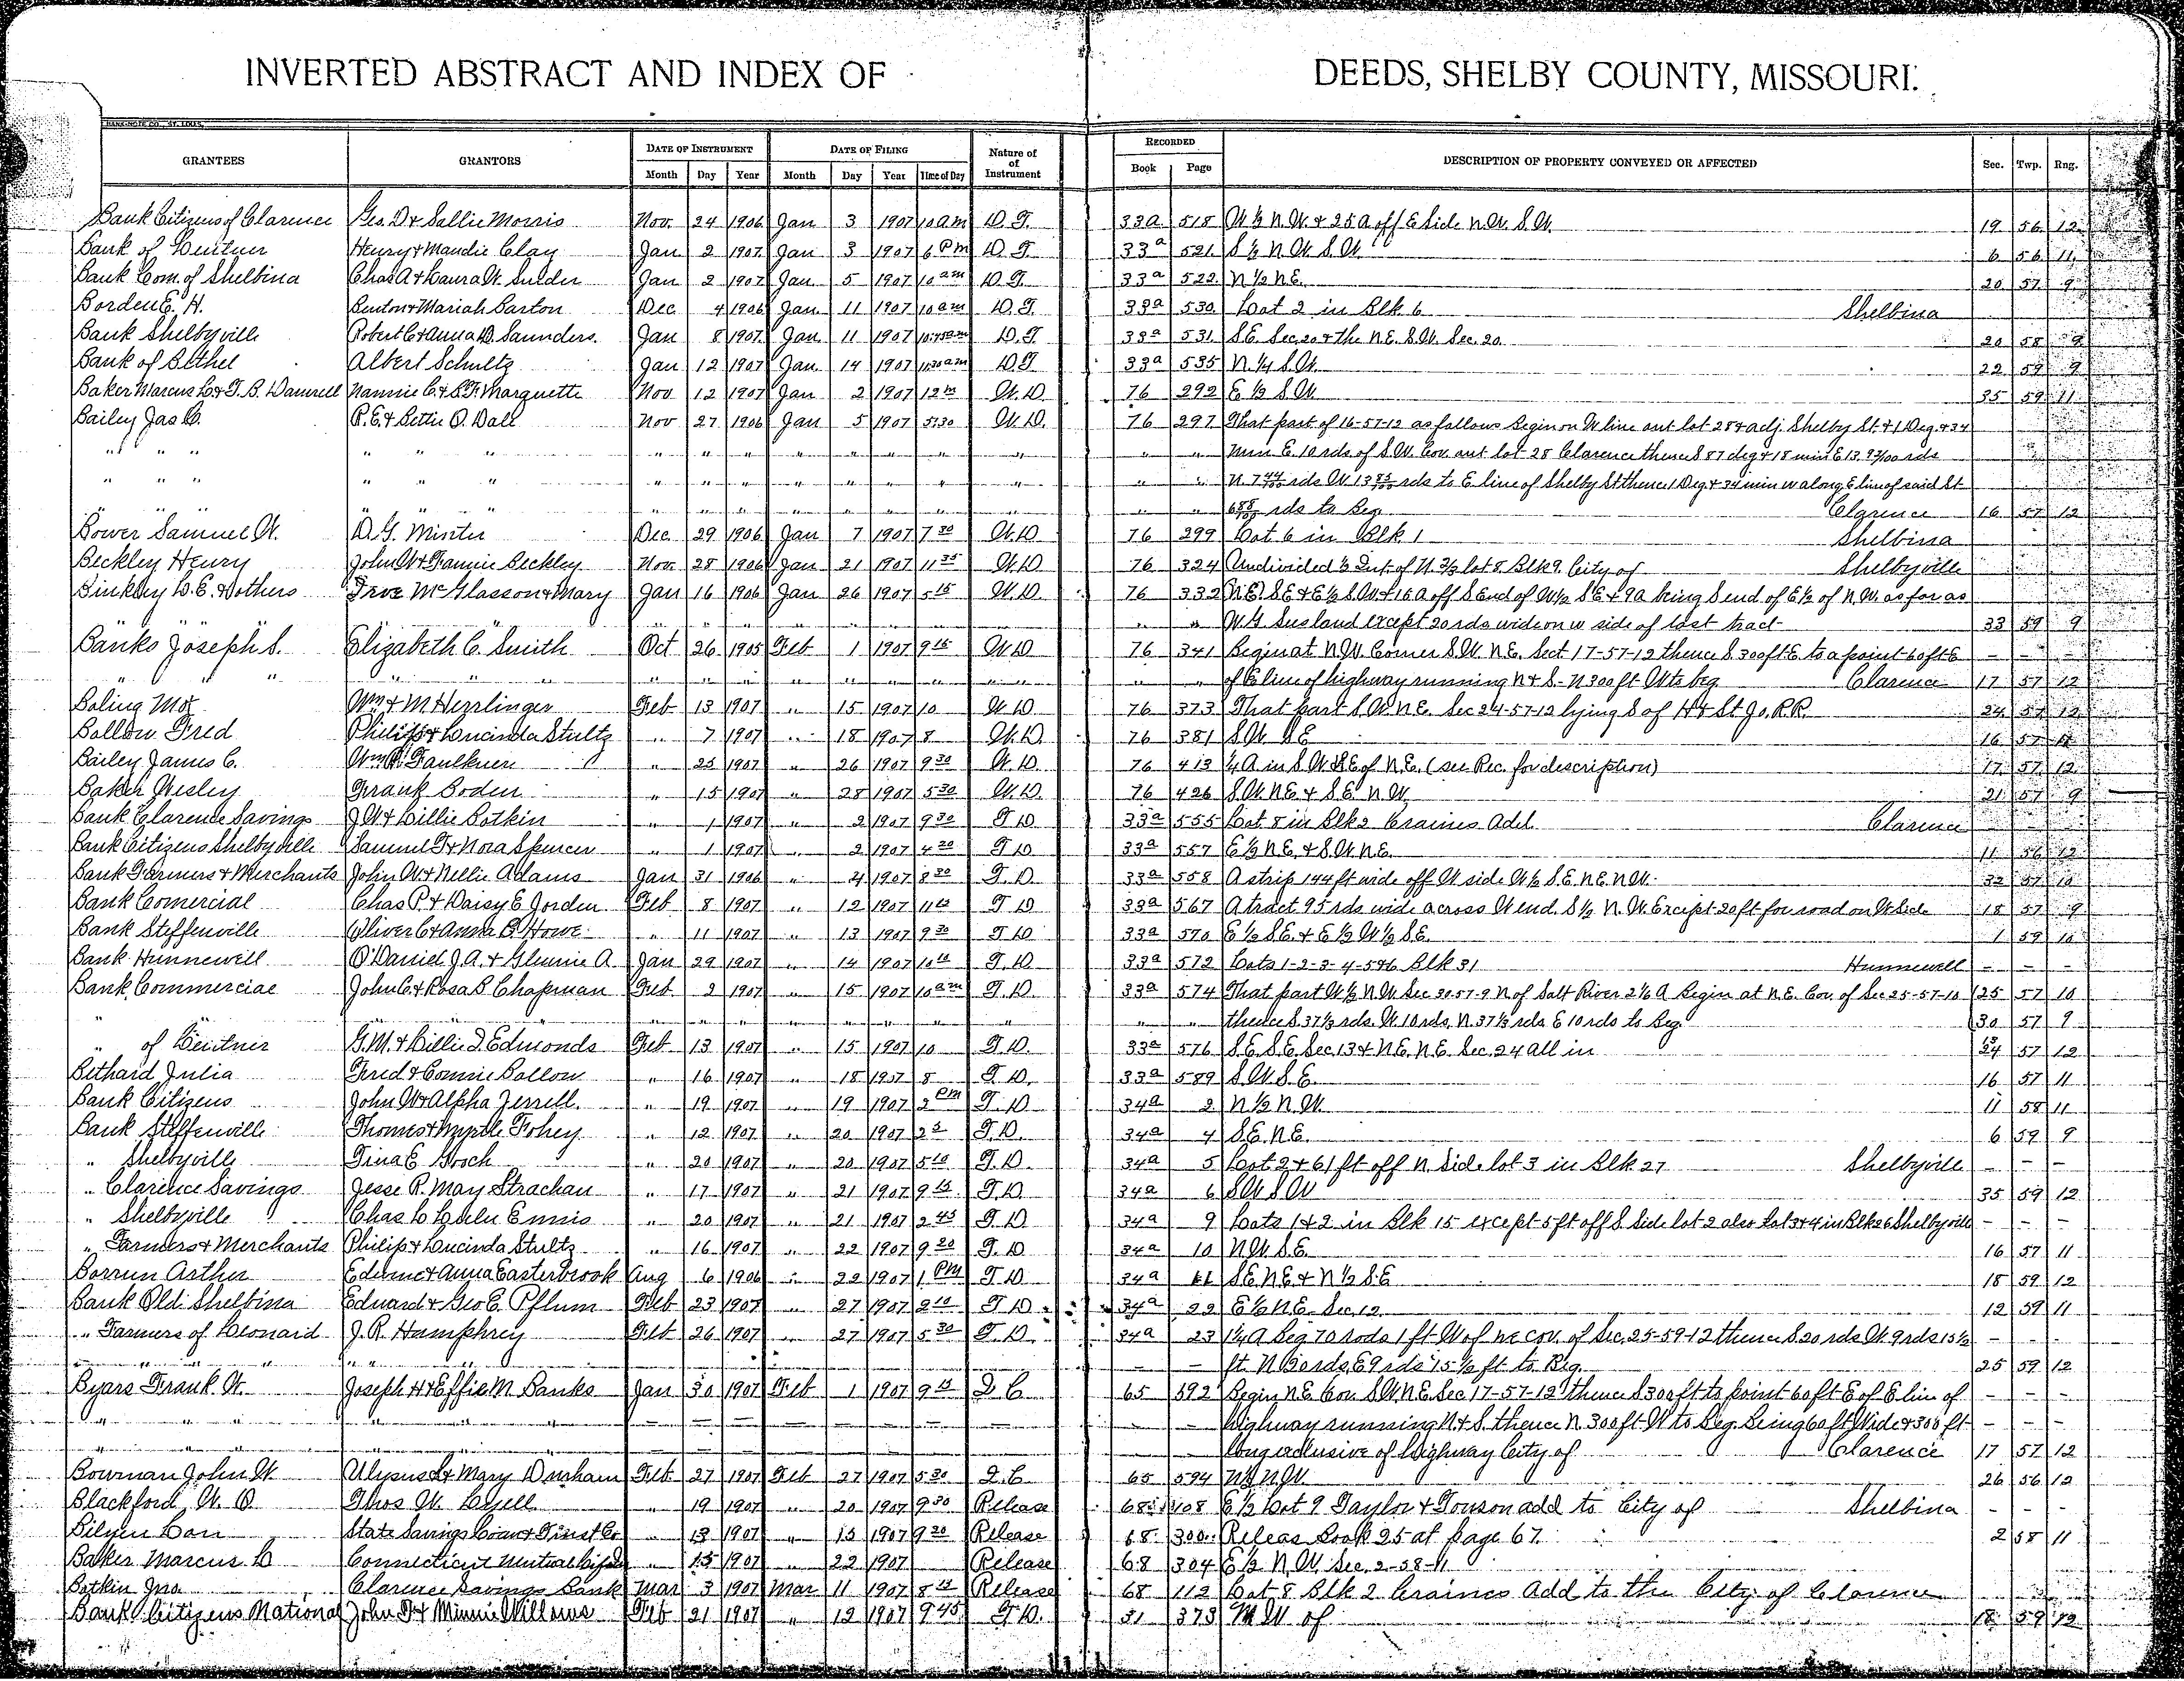 INVERTED ABSTRACT AND INDEX OF DEEDS, SHELBY COUNTY, MISSOURI.
BANK-NOTE CO., ST. LOUIS.
GRANTEES GRANTORS DATE OF INSTRUMENT DATE OF FILING Nature of of Instrument RECORDED DESCRIPTION OF PROPERTY CONVEYED OR AFFECTED Sec. Twp. Rng.
Month Day Year Month Day Year Time of Day Book Page
Bank Citizens of Clarence Geo. D + Sallie Morris Nov. 24 1906 Jan 3 1907 10 am D.T. 33a 518 W ½ N.W. + 25 a off E Side N.W. S.W. 19 56 12
Bank of Lentner Henry + Maudie Clay Jan 2 1907 Jan 3 1907 6 Pm D.T. 33a 521 S ½ N.W. S.W. 6 56 11
Bank Com. of Shelbina Chas A + Laura W. Snider Jan 2 1907 Jan 5 1907 10 am D.T. 33a 522 N ½ N.E. 20 57 9
Borden E. H. Benton + Mariah Barton Dec 4 1906 Jan 11 1907 10 am D.T. 33a 530 Lot 2 in Blk 6 Shelbina
Bank Shelbyville Robert C + Anna D. Saunders Jan 8 1907 Jan 11 1907 10:45 am D.T. 33a 531 S.E. Sec. 20 + the N.E. S.W. Sec. 20 20 58 9
Bank of Bethel Albert Schultz Jan 12 1907 Jan 14 1907 11:30 am D.T. 33a 535 N. ½ S.W. 22 59 9
Baker Marcus L. + T. B. Damrell Nannie C. + B.F. Marquette Nov 12 1907 Jan 2 1907 12 m W.D. 76 292 E ½ S.W. 35 59 11
Bailey Jas C. R.E. + Bettie O. Dall Nov 27 1906 Jan 5 1907 5:30 W.D. 76 297 That part of 16-57-12 as follows Begin on W line out lot 28 + adj. Shelby St. + 1 Deg. + 34
" " " " " " " " " " " " " " " " Min E. 10 rds of S.W. Cor. out lot 28 Clarence thence S 87 deg + 18 min E 13. 92/100 rds
" " " " " " " " " " " " " " " " N. 7 44/100 rds W 13 92/100 rds to E line of Shelby St thence 1 Deg + 34 min W along E line of said St
" " " " " " " " " " " " " " " " 6 88/100 rds to Beg Clarence 16 57 12
Bower Samuel W. D.G. Minter Dec 29 1906 Jan 7 1907 7 30 W.D. 76 299 Lot 6 in Blk 1 Shelbina
Beckley Henry John W + Fannie Beckley Nov. 28 1906 Jan 21 1907 11 35 W.D. 76 324 Undivided ½ Int. of N. ⅔ lot 8 Blk 9. City of Shelbyville
Binkley L.E. + others McGlasson + Mary Jan 16 1906 Jan 26 1907 5 15 W.D. 76 332 N.E. S.E + E ½ S.W. + 16 a off S End of W ½ S E + 9 a being S end of E ½ of N.W. as far as
" " " " " " " " " W.G. Susland except 20 rds wide on W side of last tract 33 59 9
Banks Joseph S. Elizabeth C. Smith Oct 26 1905 Feb 1 1907 9 15 W.D 76 341 Begin at N.W. Corner S.W. N.E. Sect 17-57-12 thence S. 300 ft E to a point 60 ft E – – –
" " " " " " " " " of E line of highway running N + S - N 300 ft W to beg Clarence 17 57 12
Boling Mot Wm + M Herrlinger Feb 13 1907 " 15 1907 10 W.D 76 373 That part S.W. N.E. Sec 24-57-12 lying S of H + St Jo. R.R. 24 57 12
Ballow Fred Philip + Lucinda Stultz " 7 1907 " 18 1907 8 W.D. 76 381 S.W. S E 16 57 11
Bailey James C. Wm Faulkner " 25 1907 " 26 1907 9 30 W.D. 76 413 ¼ A in S.W. S.E of N.E. (see Rec. for description) 17 57 12
Baker Wesley Frank Boden " 15 1907 " 28 1907 5 30 W.D. 76 426 S.W. N.E + S.E. N.W. 21 57 9
Bank Clarence Savings J.W. + Lillie Botkin " 1 1907 " 2 1907 9 30 T.D 33a 555 Lot 8 in Blk 2 Craines Add. Clarence
Bank Citizens Shelbyville Samuel T + Nora Spencer " 1 1907 " 2 1907 4 20 T.D 33a 557 E ½ N.E. + S.W. N.E. 11 56 12
Bank Farmers + Merchants John W + Nellie Adams Jan 31 1906 " 4 1907 8 30 T.D. 33a 558 A strip 144 ft wide off W side W ½ S.E. N.E. N.W. 32 57 10
Bank Comercial Chas P. + Daisy E Jorden Feb 8 1907 " 12 1907 11 T.D 33a 567 A tract 95 rds wide across W end S ½ N.W. Except 20 ft for road on W Side 18 57 9
Bank Steffenville Oliver C + Anna B. Howe " 11 1907 " 13 1907 9 30 T.D 33a 570 E ½ S.E. + E ½ W ½ S.E. 1 59 10
Bank Hunnewell O'Daniel J.A. + Glennie A. Jan 29 1907 " 14 1907 10 T.D. 33a 572 Lots 1-2-3-4-5+6 Blk 31 Hunnewell – – –
Bank Commercial John C + Rosa B Chapman Feb 2 1907 " 15 1907 10 am T.D. 33a 574 That part W ½ N.W. Sec 30-57-9 N of Salt River 2 ½ A Begin at N.E. Cor. of Sec 25-57-10 25 57 10
" " " " " " " " " thence S. 37 ⅓ rds. W. 10 rds, N. 37 ⅓ rds E 10 rds to Beg. 30 57 9
" of Lentner G.M. + Lillie D. Edmonds Feb 13 1907 " 15 1907 10 T.D. 33a 576 S.E. S.E. Sec. 13 + N.E. N.E. Sec. 24 all in 24 57 12
Bethard Julia Fred + Connie Ballow " 16 1907 " 18 1907 8 T.D. 33a 589 S.W. S.E. 16 57 11
Bank Citizens John W + Alpha Jerrell " 19 1907 " 19 1907 2 Pm T.D. 34a 2 N ½ N.W. 11 58 11
Bank Steffenville Thomas + Myrtle Fohey " 12 1907 " 20 1907 2 5 T.D. 34a 4 S.E. N.E. 6 59 9
" Shelbyville Tina E Gooch " 20 1907 " 20 1907 5 10 T.D. 34a 5 Lot 2 + 61 ft off N. Side lot 3 in Blk 27 Shelbyville – – –
" Clarence Savings Jesse R. May Strachan " 17 1907 " 21 1907 9 15 T.D 34a 6 S.W. S.W 35 59 12
" Shelbyville Chas L Lulu Ennis " 20 1907 " 21 1907 2 45 T.D 34a 9 Lots 1 + 2 in Blk 15 except 5 ft off S Side lot 2 also Lot 3 + 4 in Blk 26 Shelbyville – – –
" Farmers + Merchants Philip + Lucinda Stultz " 16 1907 " 22 1907 9 20 T.D. 34a 10 N.W. S.E. 16 57 11
Borrun Arther Edwine + Anna Easterbrook Aug 6 1906 " 22 1907 1 PM T.D 34a 11 S.E. N.E + N ½ S.E 18 59 12
Bank Old Shelbina Eduard + Geo E. Pflum Feb 23 1907 " 27 1907 9 10 T.D. 34a 22 E ½ N.E. Sec. 12 12 59 11
" Farmers of Leonard J.R. Humphrey Feb 26 1907 " 27 1907 5 30 T.D. 34a 23 1 ¼ A Beg 70 rods 1 ft W of NE cor. of Sec. 25-59-12 thence S. 20 rds W. 9 rds 15 ½ – – –
" " " " – – ft. N 20 rds, E 9 rds 15 ½ ft to Beg. 25 59 12
Byars Frank W. Joseph H + Effie M Banks Jan 30 1907 Feb 1 1907 9 15 Q C 65 592 Begin N.E. Cor S.W. N.E. Sec 17-57-12 thence S 300 ft to point 60 ft E of E line of – – –
" " " " – – highway running N + S. thence N. 300 ft W to Beg. Being 60 ft Wide + 300 ft – – –
" " " " – – long exclusive of highway City of Clarence 17 57 12
Bowman John W. Ulysus L + Mary Durham Feb 27 1907 Feb 27 1907 5 30 Q.C. 65 594 N ½ N.W. 26 56 12
Blackford, W. O. Thos. W. Lyell " 19 1907 " 20 1907 9 30 Release 68 108 E ½ Lot 9 Taylor + Towson add to City of Shelbina – – –
Bilyeu Lon State Savings Loan + Trust Co " 13 1907 " 15 1907 9 20 Release 68 300 Releas Book 25 at page 67. 2 58 11
Baker Marcus L Connecticut Mutual " 15 1907 " 22 1907 Release 68 304 E ½ N.W. Sec. 2-58-11
Botkin Jno Clarence Savings Bank Mar 3 1907 Mar 11 1907 8 15 Release 68 112 Lot 8 Blk 2 Craines Add to the City of Clarence
Bank Citizens National John F + Minnie Willows Feb 21 1907 " 12 1907 9 45 T.D. 31 373 N.W. of 18 59 12